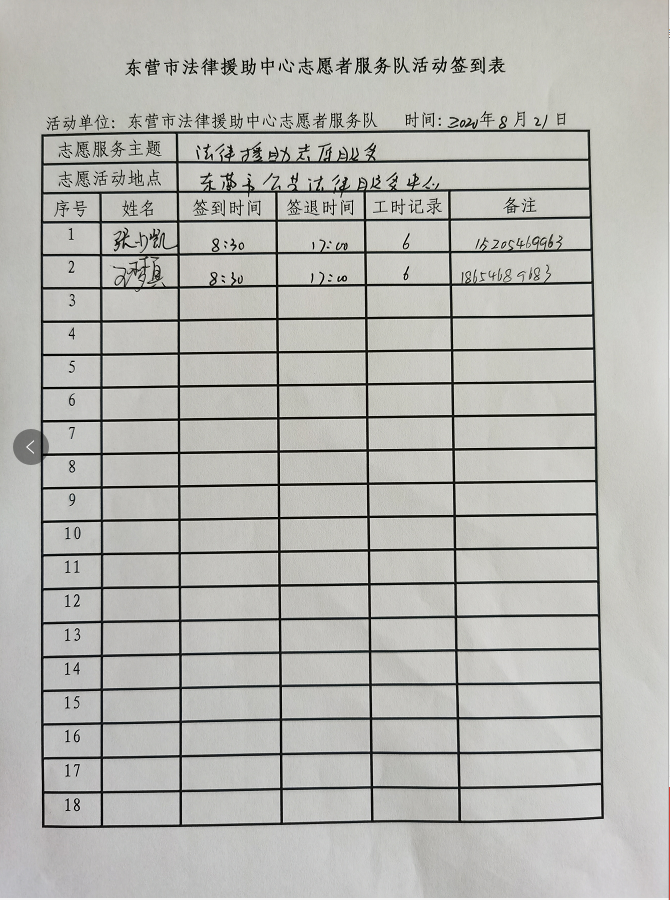 东营市法律援助中心志愿者服务队活动签到表
活动单位：东营市法律援助中心志愿者服务队 时间：2020年8月21日
志愿服务主题 法律援助志愿服务
志愿活动地点 东营市公共法律服务中心
序号 姓名 签到时间 签退时间 工时记录 备注
1 张少凯 8:30 17:00 6 15205469963
2 8:30 17:00 6 18654689683
3
4
5
6
7
8
9
10
11
12
13
14
15
16
17
18